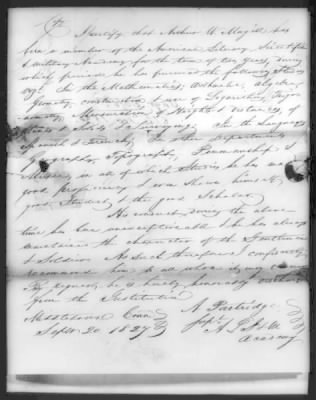 I Certify that Arthur W. Magill has
been a member of the American Literary, Scientific
& Military Academy for the term of two years, during
which period he has pursued the following Studies
In the Mathematics, Arithmetic, Algebra
Geometry, construction use of Logarithms, Trigo-
nometry, Mensuration of Heights & Distances of
Planes & Solids & Surveying. In the Languages
Spanish & French, In other departments
Topography, Penmanship &
Music, in all of which Studies he has made
good proficiency & has Shown himself a
good Student & the good Scholar.
His conduct during the above
time has been unexceptionable & he has always
sustained the character of the Gentleman
& Soldier. As such therefore I confidently
recommend him to all whom it may concern
By Request, he is hereby honorably discharged
from the Institution
Middletown Conn. A Partridge
Sept. 20 1827 Supt. A. L. S. & M.
Academy